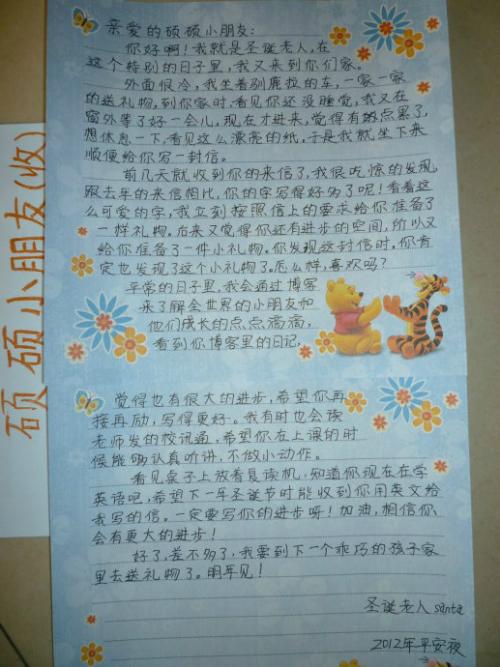 硕硕小朋友(收)
亲爱的硕硕小朋友:
你好啊!我就是圣诞老人,在
这个特别的日子里,我又来到你们家。
外面很冷,我坐着驯鹿拉的车,一家一家
的送礼物,到你家时,看见你还没睡觉,我又在
窗外等了好一会儿,现在才进来,觉得有点累了,
想休息一下,看见这么漂亮的纸,于是我就坐下来
顺便给你写一封信。
前几天就收到你的来信了,我很吃惊的发现,
跟去年的来信相比,你的字写得好多了呢!看着这
么可爱的字,我立刻按照信上的要求给你准备了
一样礼物,后来又觉得你还有进步的空间,所以又
给你准备了一件小礼物,你发现这封信时,你肯
定也发现了这个小礼物了,怎么样,喜欢吗?
平常的日子里,我会通过博客
来了解全世界的小朋友和
他们成长的点点滴滴,
看到你博客里的日记,
觉得也有很大的进步,希望你再
接再励,写得更好。我有时也会读
老师发的校讯通,希望你在上课的时
候能够认真听讲,不做小动作。
看见桌子上放着复读机,知道你现在在学
英语吧,希望下一年圣诞节时能收到你用英文给
我写的信。一定要写你的进步呀!加油,相信你
会有更大的进步!
好了,差不多了,我要到下一个乖巧的孩子家
里去送礼物了。明年见!
圣诞老人 santa
2012年平安夜